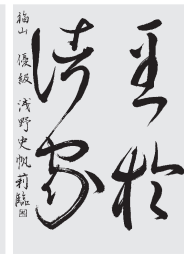 至於
諸家
福山 優級 浅野史帆莉臨